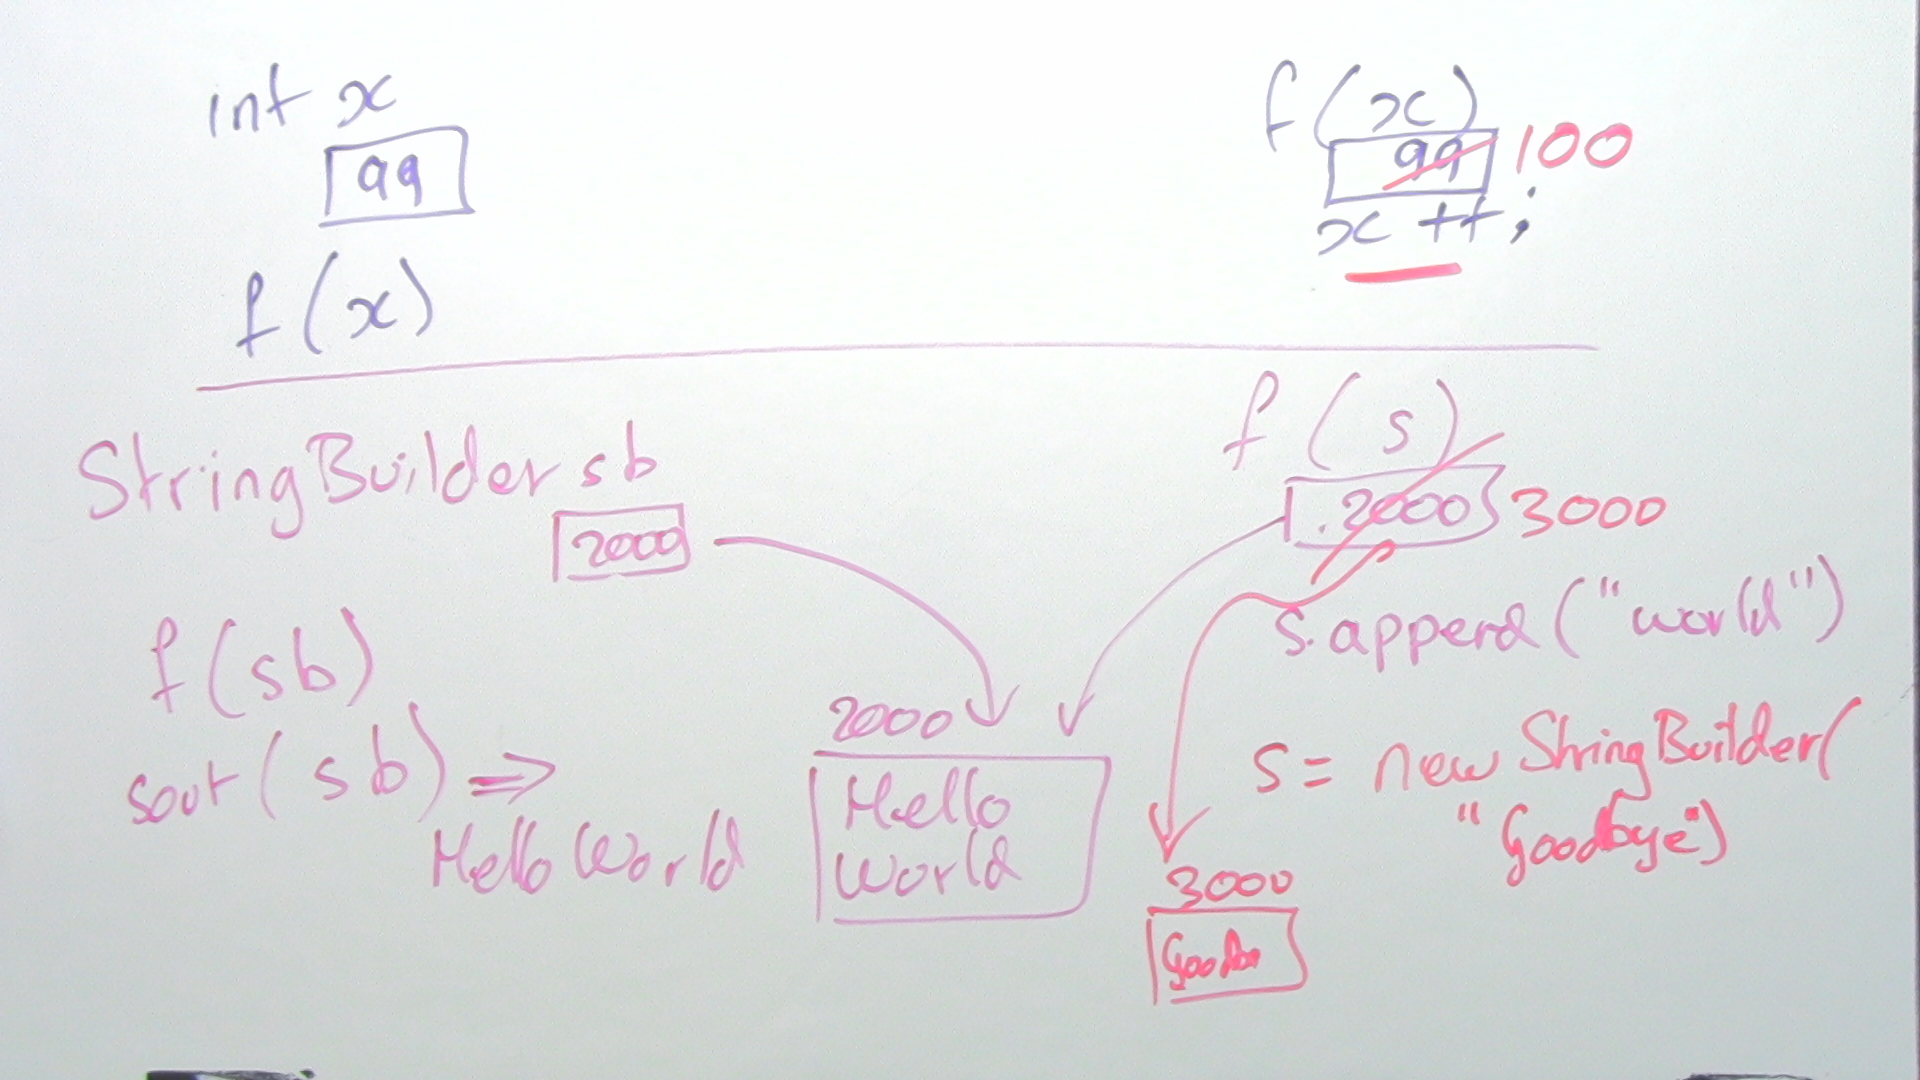 int x
99
f(x)
f(x)
99 100
x++;
StringBuilder sb
2000
f(sb)
sout(sb) ⇒
Hello World
2000
Hello
World
f(s)
2000 3000
s.append("world")
s = new StringBuilder(
"Goodbye")
3000